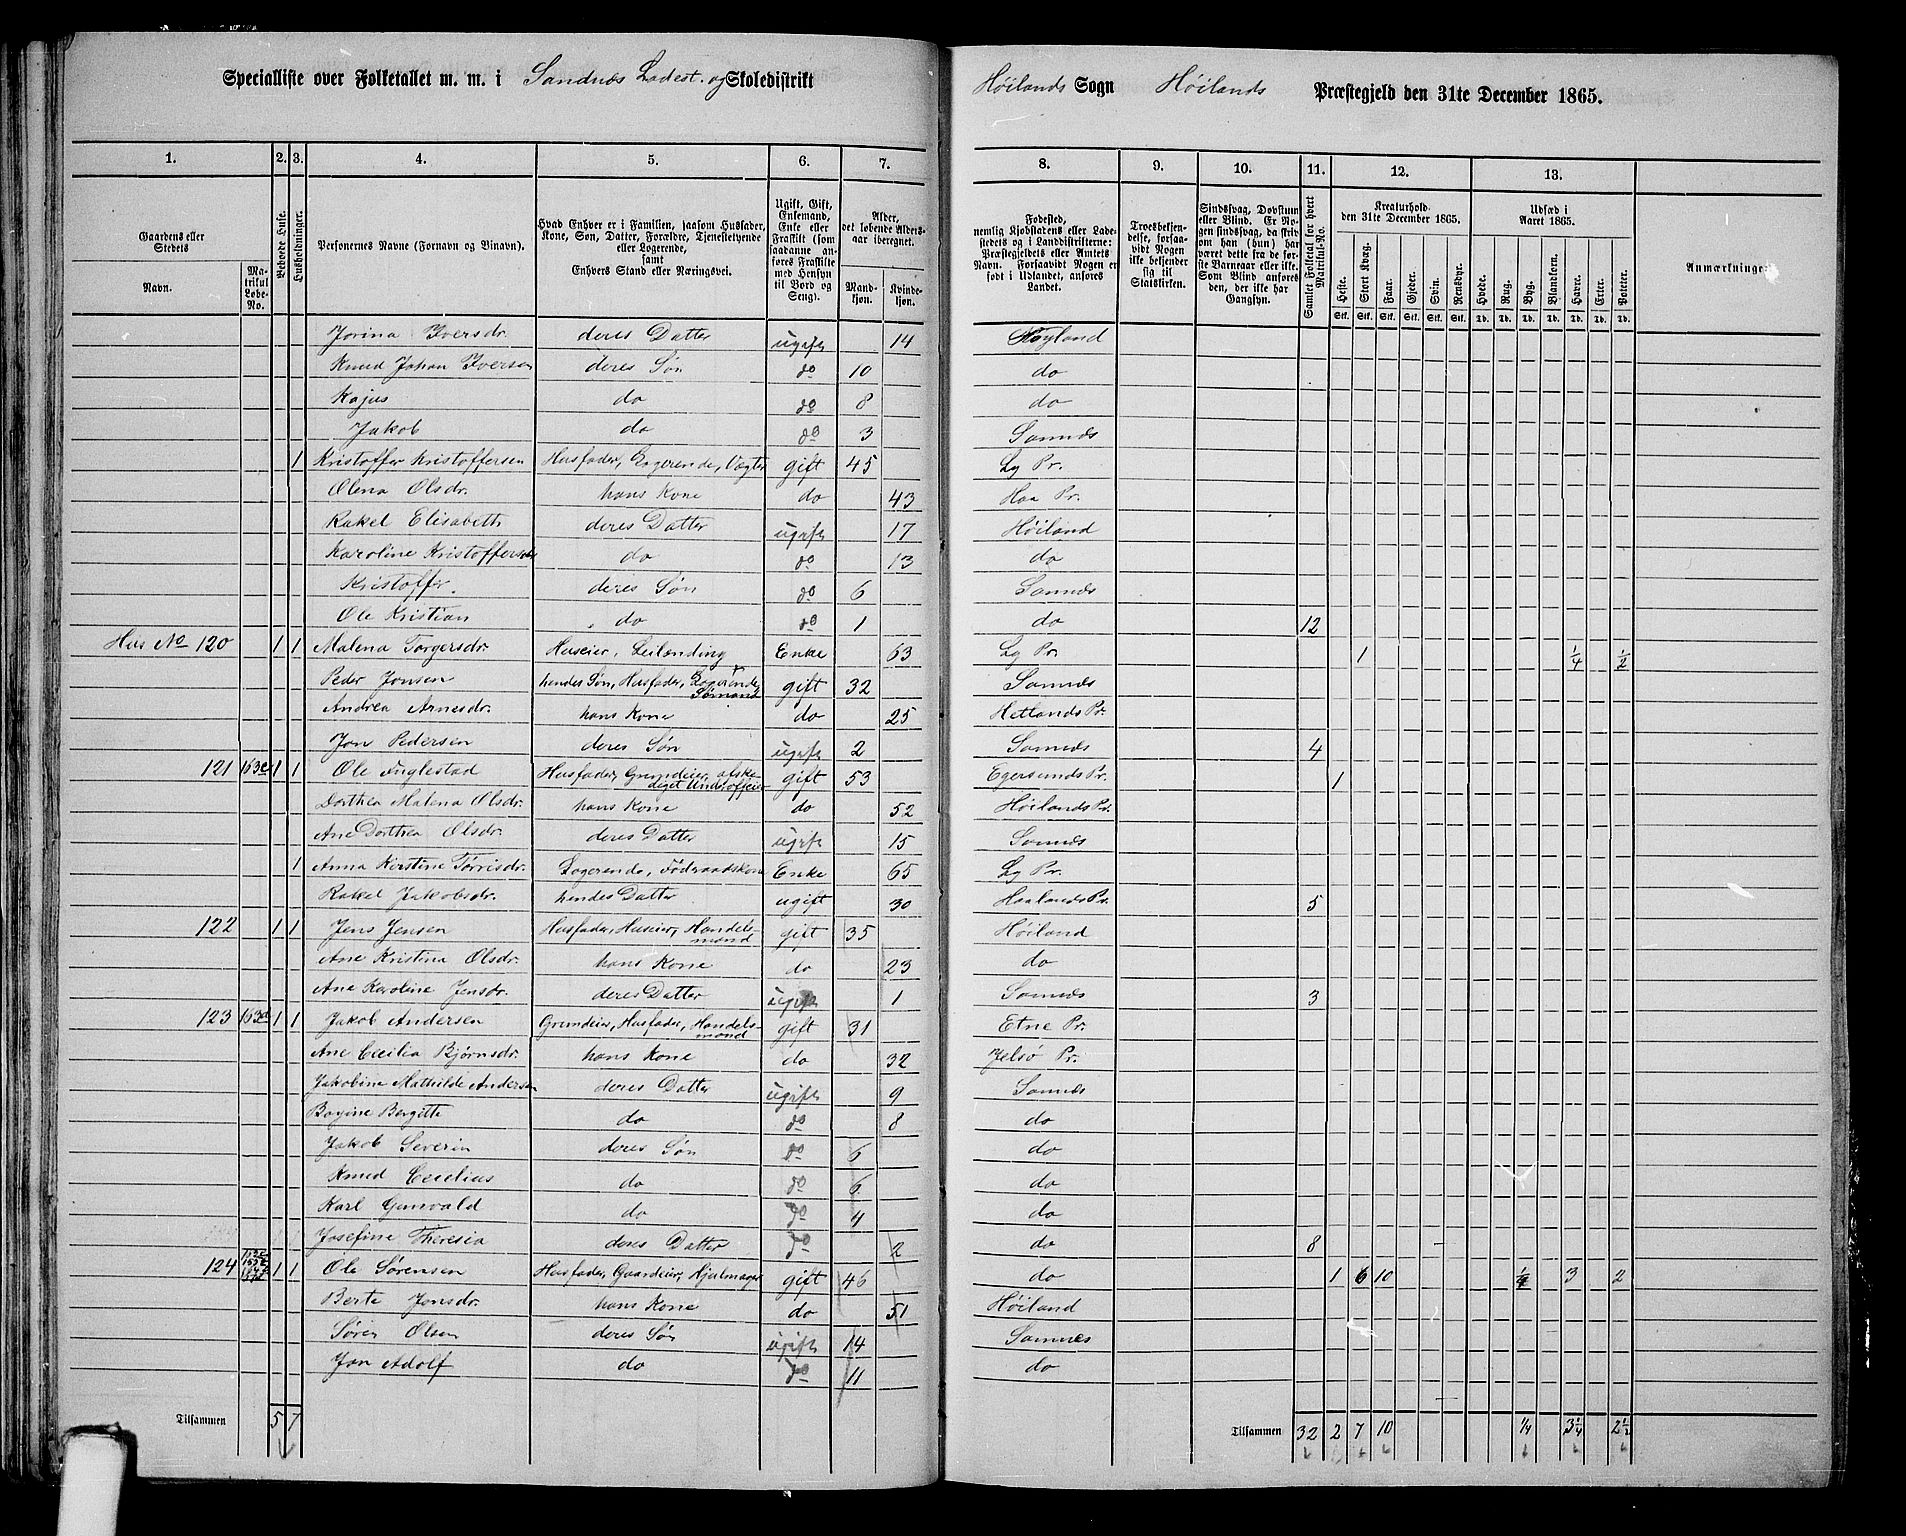 Specialliste over Folketallet m. m. i Sandnæs Ladest. og Skoledistrikt
Høilands Sogn Høilands Præstegjeld den 31te December 1865.
1. 2. 3. 4. 5. 6. 7. 8. 9. 10. 11. 12. 13.
Gaardens eller Stedets
Navn.
Matrikul Løbe-No.
Beboede Huse.
Husholdninger.
Personernes Navne (Fornavn og Binavn).
Hvad Enhver er i Familien, saasom Husfader, Kone, Søn, Datter, Forældre, Tjenestetyende eller Logerende, samt Enhvers Stand eller Næringsvei.
Ugift, Gift, Enkemand, Enke eller Fraskilt (som saadanne anføres Fraskilte med Hensyn til Bord og Seng).
Alder, det løbende Aldersaar iberegnet.
Mandkjøn. Kvindekjøn.
Fødested, nemlig Kjøbstadens eller Ladestedets og i Landdistrikterne: Præstegjeldets eller Amtets Navn. Forsaavidt Nogen er født i Udlandet, anføres Landet.
Troesbekjendelse, forsaavidt Nogen ikke bekjender sig til Statskirken.
Sindssvag, Døvstum eller Blind. Er Nogen sindssvag, da hvorvidt
Samlet Folketal for hvert Matrikul-No.
Kreaturhold. den 31te December 1865.
Heste. Stort Kvæg. Faar. Gjeder. Svin. Rensdyr.
Udsæd i Aaret 1865.
Hvede. Rug. Byg. Blandkorn. Havre. Erter. Poteter.
Stk. Stk. Stk. Stk. Stk. Stk. Td. Td. Td. Td. Td. Td. Td.
Anmærkninger
Jorina Iversdr. deres Datter ugift 14 Høyland
Knud Johan Iversen deres Søn do 10 do
Kajus do do 8 do
Jakob do do 3 Sannæs
1 Kristoffer Kristoffersen Husfader, Logerende, Vægter gift 45 Ly Pr.
Olena Olsdr. hans Kone do 43 Haa Pr.
Rakel Elisabeth deres Datter ugift 17 Høiland
Karoline Kristoffersdr do do 13 do
Kristoffer deres Søn do 6 Sannæs
Ole Kristian do do 1 do 12
Hus No 120 1 1 Malena Torgersdr. Huseier, Leilænding Enke 63 Ly Pr. 1 1/4 1/2
Peder Jonsen hendes Søn, Husfader, Logerende Sømand gift 32 Sannæs
Andrea Arnesdr. hans Kone do 25 Hetlands Pr.
Jon Pedersen deres Søn ugift 2 Sannæs 4
121 163c 1 1 Ole Fuglestad Husfader, Grundeier, afskediget Underofficier gift 53 Egersunds Pr. 1
Dorthea Malena Olsdr. hans Kone do 52 Høilands Pr.
Ane Dorthea Olsdr. deres Datter ugift 15 Sannæs
1 Anna Kirstine Tørrisdr. Logerende, Føderaadskone Enke 65 Ly Pr.
Rakel Jakobsdr. hendes Datter ugift 30 Haalands Pr. 5
122 1 1 Jens Jensen Husfader, Huseier, Handelsmand gift 35 Høiland
Ane Kristina Olsdr. hans Kone do 23 do
Ane Karoline Jensdr. deres Datter ugift 1 Sannæs 3
123 163d 1 1 Jakob Andersen Grundeier, Husfader, Handelsmand gift 31 Etne Pr.
Ane Cecilia Bjørnsdr. hans Kone do 32 Jelsø Pr.
Jakobine Mathilde Andersen deres Datter ugift 9 Sannæs
Bogine Bergitte do do 8 do
Jakob Severin deres Søn do 6 do
Knud Cecilius do do 6 do
Karl Gunvald do do 4 do
Josefine Theresia deres Datter do 2 do 8
124 1 1 Ole Sørensen Husfader, Gaardeier, Hjulmager gift 46 do 1 6 10 1/4 3 2
Berte Jonsdr. hans Kone do 51 Høiland
Søren Olsen deres Søn ugift 14 Sannæs
Jon Adolf do do 11 do
Tilsammen 5 7 Tilsammen 32 2 7 10 1/4 3 1/4 2 1/2